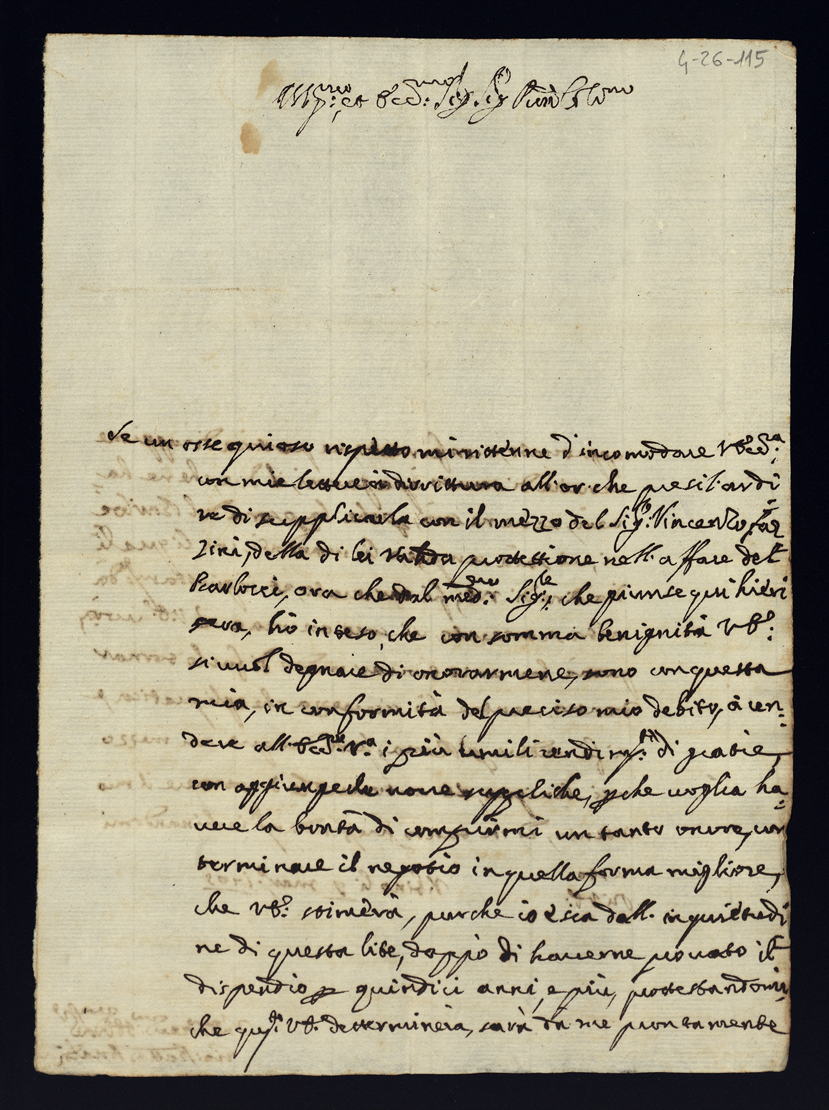 4-26-115
Ill.mo et Ecc.mo Sig. Sig. P.ron Col.mo
Se un ossequioso rispetto mi rittenne d'incomodare V. Ecc.za
con mie lettere à dirrittura all'or che presi l'ardi
re di supplicarla con il mezzo del Sig.r Vincenzo Faz
zini, della di lei valida protettione nell'affare del
Barlocci, ora che dal med.mo Sig.re, che giunse qui hieri
sera, hò inteso, che con somma benignità V. E.
si vuol degnare di onorarmene, sono con questa
mia, in conformità del preciso mio debito, à ren=
dere all'Ecc.za V.a i più umili rendim.ti di gratie,
con aggiungerle nove suppliche, perche voglia ha=
vere la bontà di compirmi un tanto onore, con
terminare il negotio in quella forma migliore,
che V. E. stimerà, purche io esca dall'inquietudi
ne di questa lite, doppo di haverne provato il
dispendio per quindici anni, e più, protestandomi,
che q.to V. E. detterminerà, sarà da me prontamente